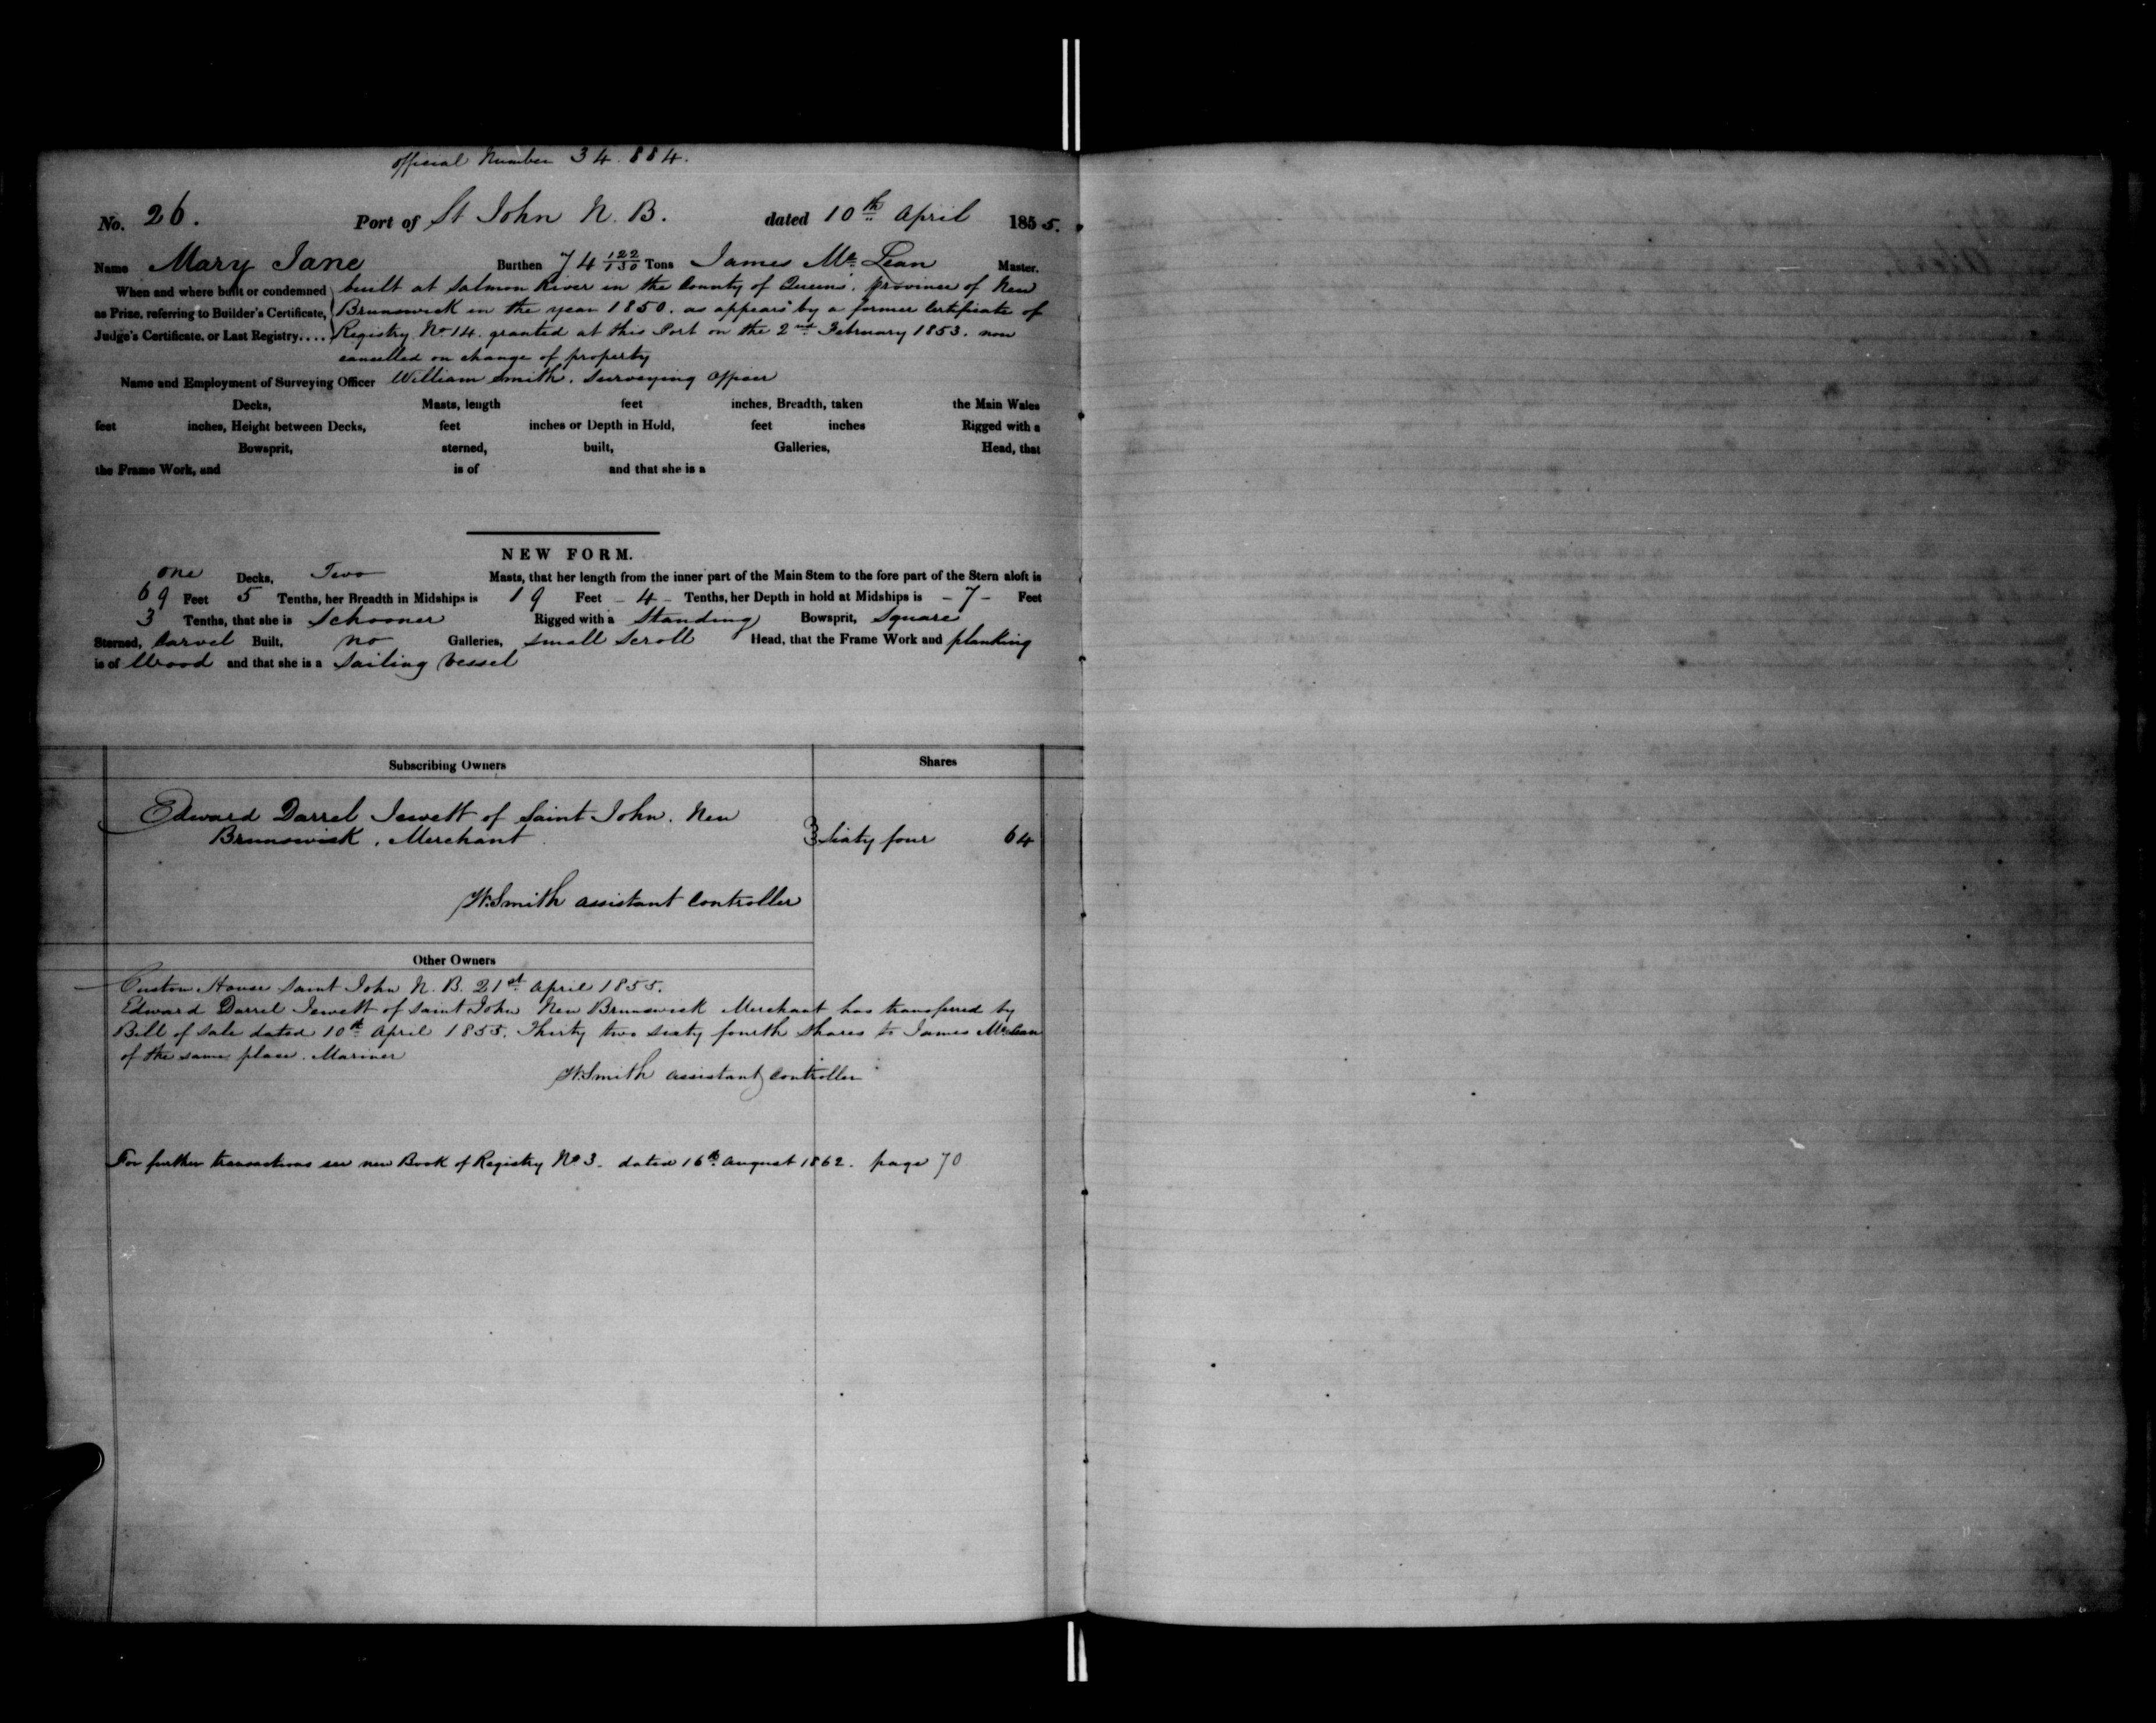 official Number 34.884.
No. 26. Port of St John N. B. dated 10th April 1855.
Name Mary Jane Burthen 74 122/130 Tons James Mc Lean Master.
When and where built or condemned built at Salmon River in the County of Queens, province of New
as Prize, referring to Builder's Certificate, Brunswick in the year 1850. as appears by a former Certificate of
Judge's Certificate, or Last Registry.... Registry No 14. granted at this Port on the 2nd February 1853. now
cancelled on change of property
Name and Employment of Surveying Officer William Smith. Surveying Officer
Decks, Masts, length feet inches, Breadth, taken the Main Wales
feet inches, Height between Decks, feet inches or Depth in Hold, feet inches Rigged with a
Bowsprit, sterned, built, Galleries, Head, that
the Frame Work, and is of and that she is a
NEW FORM.
One Decks, Two Masts, that her length from the inner part of the Main Stem to the fore part of the Stern aloft is
69 Feet 5 Tenths, her Breadth in Midships is 19 Feet - 4 - Tenths, her Depth in hold at Midships is - 7 - Feet
3 Tenths, that she is Schooner Rigged with a Standing Bowsprit, Square
Sterned, Carvel Built, no Galleries, small scroll Head, that the Frame Work and planking
is of Wood and that she is a Sailing Vessel
Subscribing Owners Shares
Edward Darrel Jewett of Saint John, New
Brunswick, Merchant. } Sixty four 64
W. Smith assistant Controller
Other Owners
Custom House Saint John N. B. 21st April 1855.
Edward Darrel Jewett of Saint John New Brunswick Merchant has transferred by
Bill of Sale dated 10th April 1855. Thirty two sixty fourth Shares to James McLean
of the same place. Mariner
W. Smith assistant Controller
For further transactions see new Book of Registry No 3. dated 16th August 1862. page 70